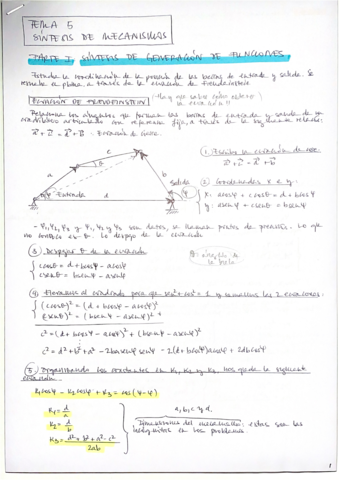 TEMA 5
SÍNTESIS DE MECANISMOS
PARTE I. SÍNTESIS DE GENERACIÓN DE FUNCIONES.
Estudia la coordinación de la posición de las barras de entrada y salida. Se
resuelve el problema a través de la ecuación de Freudenstein
ECUACIÓN DE FREUDENSTEIN (Hay que saber cómo obtener
la ecuación!!)
Relaciona los ángulos que forman las barras de entrada y salida de un
cuadrilátero articulado con referencia fija, a través de la siguiente relación:
a + c = d + b - Ecuación de cierre.
c
θ
a
b
ψ Entrada
d
Salida
φ
① Escribir la ecuación de cierre.
a + c = d + b
② Coordenadas x e y.
x: a cosψ + c cosθ = d + b cosφ
y: a senψ + c senθ = b senφ
son datos, se llaman puntos de precisión. Lo que
no conozco es θ. Lo despejo de la ecuación
③ Despejar θ de la ecuación
c cosθ = d + b cosφ - a cosψ
c senθ = b senφ - a senψ
④ Elevamos al cuadrado para que sen² + cos² = 1 y sumamos las 2 ecuaciones.
(c cosθ)² = (d + b cosφ - a cosψ)²
(c senθ)² = (b senφ - a senψ)² +
c² = (d + b cosφ - a cosψ)² + (b senφ - a senψ)²
c² = d² + b² + a² - 2ba senφ senψ - 2(d + b cosφ) a cosψ + 2db cosφ
⑤ Reorganizando las constantes en K₁, K₂ y K₃, nos queda la siguiente
ecuación.
K₁ cosφ - K₂ cosψ + K₃ = cos(ψ-φ)
K₁ = d/a
K₂ = d/b
K₃ = d² + b² + a² - c² / 2ab
a, b, c y d.
Dimensiones del mecanismo: estas son las
incógnitas en los problemas.
1